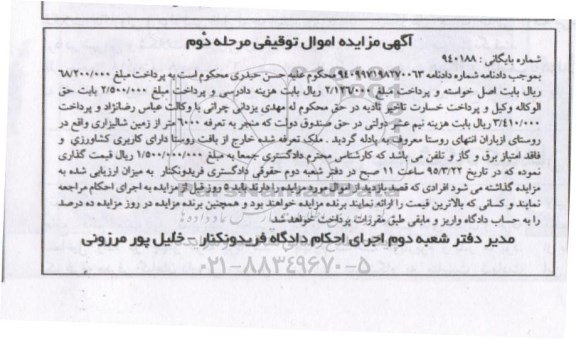 آگهی مزایده اموال توقیفی مرحله دوم
شماره بایگانی: ۹۴۰۱۸۸
بموجب دادنامه شماره دادنامه ۹۴۰۹۹۷۱۹۸۲۷۰۰۰۶۳ محکوم علیه حسن حیدری محکوم است به پرداخت مبلغ ۶۸/۲۰۰/۰۰۰
ریال بابت اصل خواسته و پرداخت مبلغ ۲/۱۳۶/۰۰۰ ریال بابت هزینه دادرسی و پرداخت مبلغ ۲/۵۰۰/۰۰۰ بابت حق
الوکاله وکیل و پرداخت خسارت تاخیر تادیه در حق محکوم له مهدی یزدانی چراتی با وکالت عباس رضانژاد و پرداخت
۳/۴۱۰/۰۰۰ ریال بابت هزینه نیم عشر دولتی در حق صندوق دولت که منجر به تعرفه ۶۰۰۰ متر از زمین شالیزاری واقع در
روستای ازباران انتهای روستا معروف به پادله گردید . ملک تعرفه شده خارج از بافت روستا دارای کاربری کشاورزی و
فاقد امتیاز برق و گاز و تلفن می باشد که کارشناس محترم دادگستری جمعا به مبلغ ۱/۵۰۰/۰۰۰/۰۰۰ ریال قیمت گذاری
نموده که در تاریخ ۹۵/۳/۲۲ ساعت ۱۱ صبح در دفتر شعبه دوم حقوقی دادگستری فریدونکنار به میزان ارزیابی شده به
مزایده گذاشته می شود افرادی که قصد بازدید از اموال مورد مزایده را دارند باید ۵ روز قبل از مزایده به اجرای احکام مراجعه
نمایند و کسانی که بالاترین قیمت را ارائه نمایند برنده مزایده خواهند بود و همچنین برنده مزایده در روز مزایده ده درصد
را به حساب دادگاه واریز و مابقی طبق مقررات پرداخت خواهد شد
مدیر دفتر شعبه دوم اجرای احکام دادگاه فریدونکنار - خلیل پور مرزونی
۰۲۱-۸۸۳۴۹۶۷۰-۵